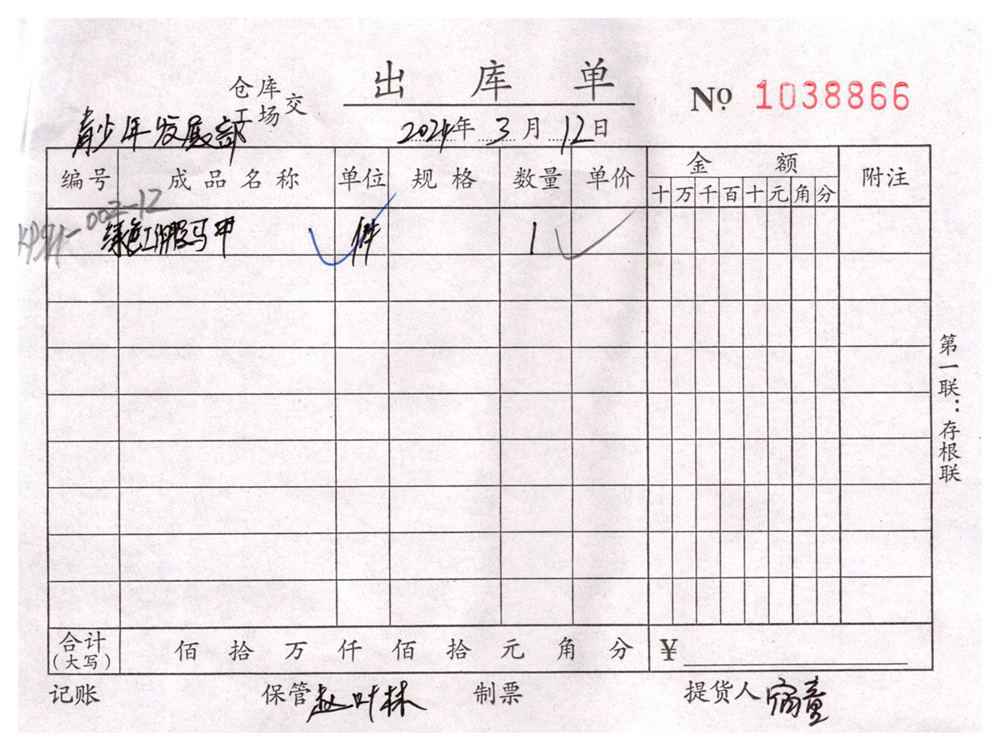 出库单
仓库
工场交
№ 1038866
青少年发展部
2024年3月12日
编号 成品名称 单位 规格 数量 单价 金额 附注
十万千百十元角分
002-12
绿色工作服马甲 件 1
第一联：存根联
合计(大写) 佰 拾 万 仟 佰 拾 元 角 分 ¥
记账 保管 赵叶林 制票 提货人 宿童